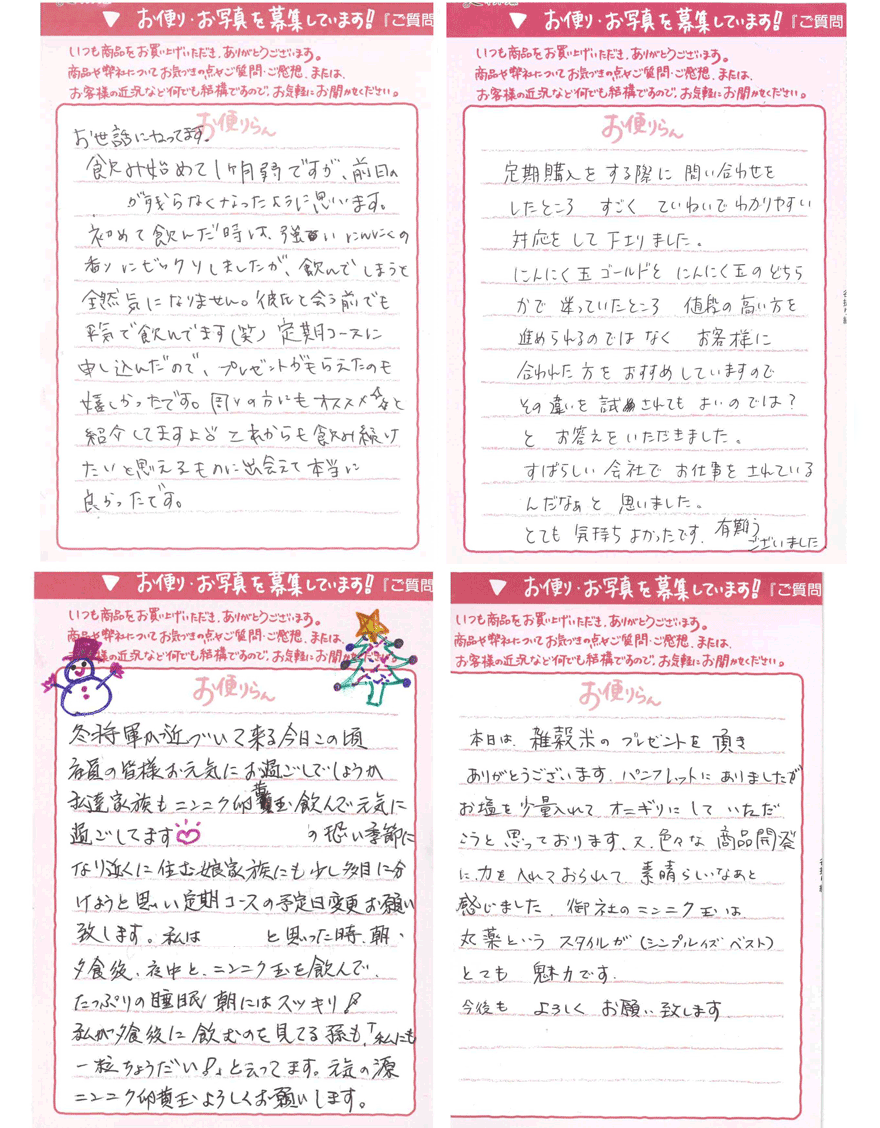 ▼ お便り・お写真を募集しています!!『ご質問
いつも商品をお買い上げいただき、ありがとうございます。
商品や弊社についてお気づきの点やご質問・ご感想、または、
お客様の近況など何でも結構ですので、お気軽にお聞かせください。
お便りらん
お世話になってます。
飲み始めて1ヶ月弱ですが、前日の
が残らなくなったように思います。
初めて飲んだ時は、強いにんにくの
香りにビックリしましたが、飲んでしまうと
全然気になりません。彼氏と会う前でも
平気で飲んでます(笑) 定期コースに
申し込んだので、プレゼントがもらえたのも
嬉しかったです。周りの方にもオススメ☆と
紹介してますよ これからも飲み続け
たいと思えるものに出会えて本当に
良かったです。
▼ お便り・お写真を募集しています!!『ご質問
いつも商品をお買い上げいただき、ありがとうございます。
商品や弊社についてお気づきの点やご質問・ご感想、または、
お客様の近況など何でも結構ですので、お気軽にお聞かせください。
お便りらん
定期購入をする際に問い合わせを
したところ すごく ていねいでわかりやすい
対応をして下さりました。
にんにく玉ゴールドと にんにく玉のどちら
かで迷っていたところ 値段の高い方を
進められるのではなく お客様に
合われた方をおすすめしていますので
その違いを試されても よいのでは?
と お答えをいただきました。
すばらしい会社で お仕事をされている
んだなぁと 思いました。
とても 気持ちよかったです。有難う
ございました
▼ お便り・お写真を募集しています!!『ご質問
いつも商品をお買い上げいただき、ありがとうございます。
商品や弊社についてお気づきの点やご質問・ご感想、または、
お客様の近況など何でも結構ですので、お気軽にお聞かせください。
お便りらん
冬将軍が近づいて来る今日この頃
社員の皆様お元気にお過ごしでしょうか
私達家族もニンニク卵黄玉飲んで元気に
過ごしてます♡ の恐い季節に
なり近くに住む娘家族にも少し多目に分
けようと思い定期コースの予定日変更お願い
致します。私は と思った時、朝・
夕食後、夜中と、ニンニク玉を飲んで、
たっぷりの睡眠、朝にはスッキリ!
私が夕食後に飲むのを見てる孫も、「私にも
一粒ちょうだい!」と云ってます。元気の源
ニンニク卵黄玉よろしくお願いします。
▼ お便り・お写真を募集しています!!『ご質問
いつも商品をお買い上げいただき、ありがとうございます。
商品や弊社についてお気づきの点やご質問・ご感想、または、
お客様の近況など何でも結構ですので、お気軽にお聞かせください。
お便りらん
本日は、雑穀米のプレゼントを頂き
ありがとうございます。パンフレットにありましたが
お塩を少量入れて オニギリにして いただ
こうと思っております、又、色々な商品開発
に、力を入れておられて、素晴らしいなあと
感じました。御社のニンニク玉は
丸薬という スタイルが(シンプルイズベスト)
とても 魅力です。
今後も よろしく お願い致します